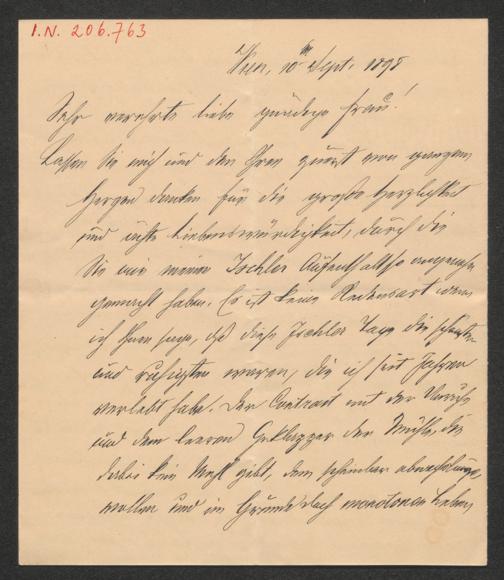 I.N. 206.763
Wien, 10ten Sept. 1898
Sehr verehrte liebe gnädige Frau!
Lassen Sie mich und den Ihren zuerst von ganzem
Herzen danken für die große Herzlichkeit
und echte Liebenswürdigkeit, durch die
Sie mir meinen Ischler Aufenthalt so angenehm
gemacht haben. Es ist keine Redensart wenn
ich Ihnen sage, daß diese Ischler Tage die schönsten
und ruhigsten waren, die ich seit Jahren
verlebt habe. Der Contrast mit der Unruhe
und dem leeren Geklapper der Mühle, die
dabei kein Mehl gibt, dem scheinbar
vollen und im Grunde doch monotonen Leben